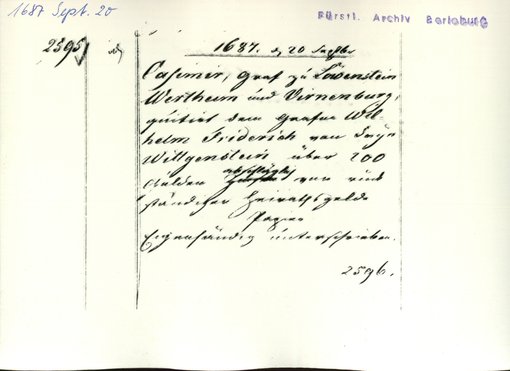 1687 Sept. 20
Fürstl. Archiv Berleburg
2595
1687. d. 20 Septbr.
Casimir, Graf zu Löwenstein
Wertheim und Virnenburg,
quitirt dem Grafen Wil
helm Friderich von Sayn
Wittgenstein über 200
Gulden abschläglich von rück
ständiger Heirathsgelde
Papier
Eigenhändig unterschrieben.
2596.